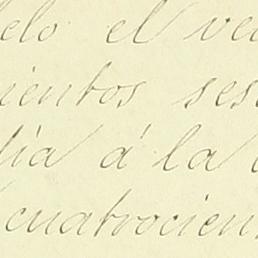 elo el ve
ientos ses
día á la
cuatrocien